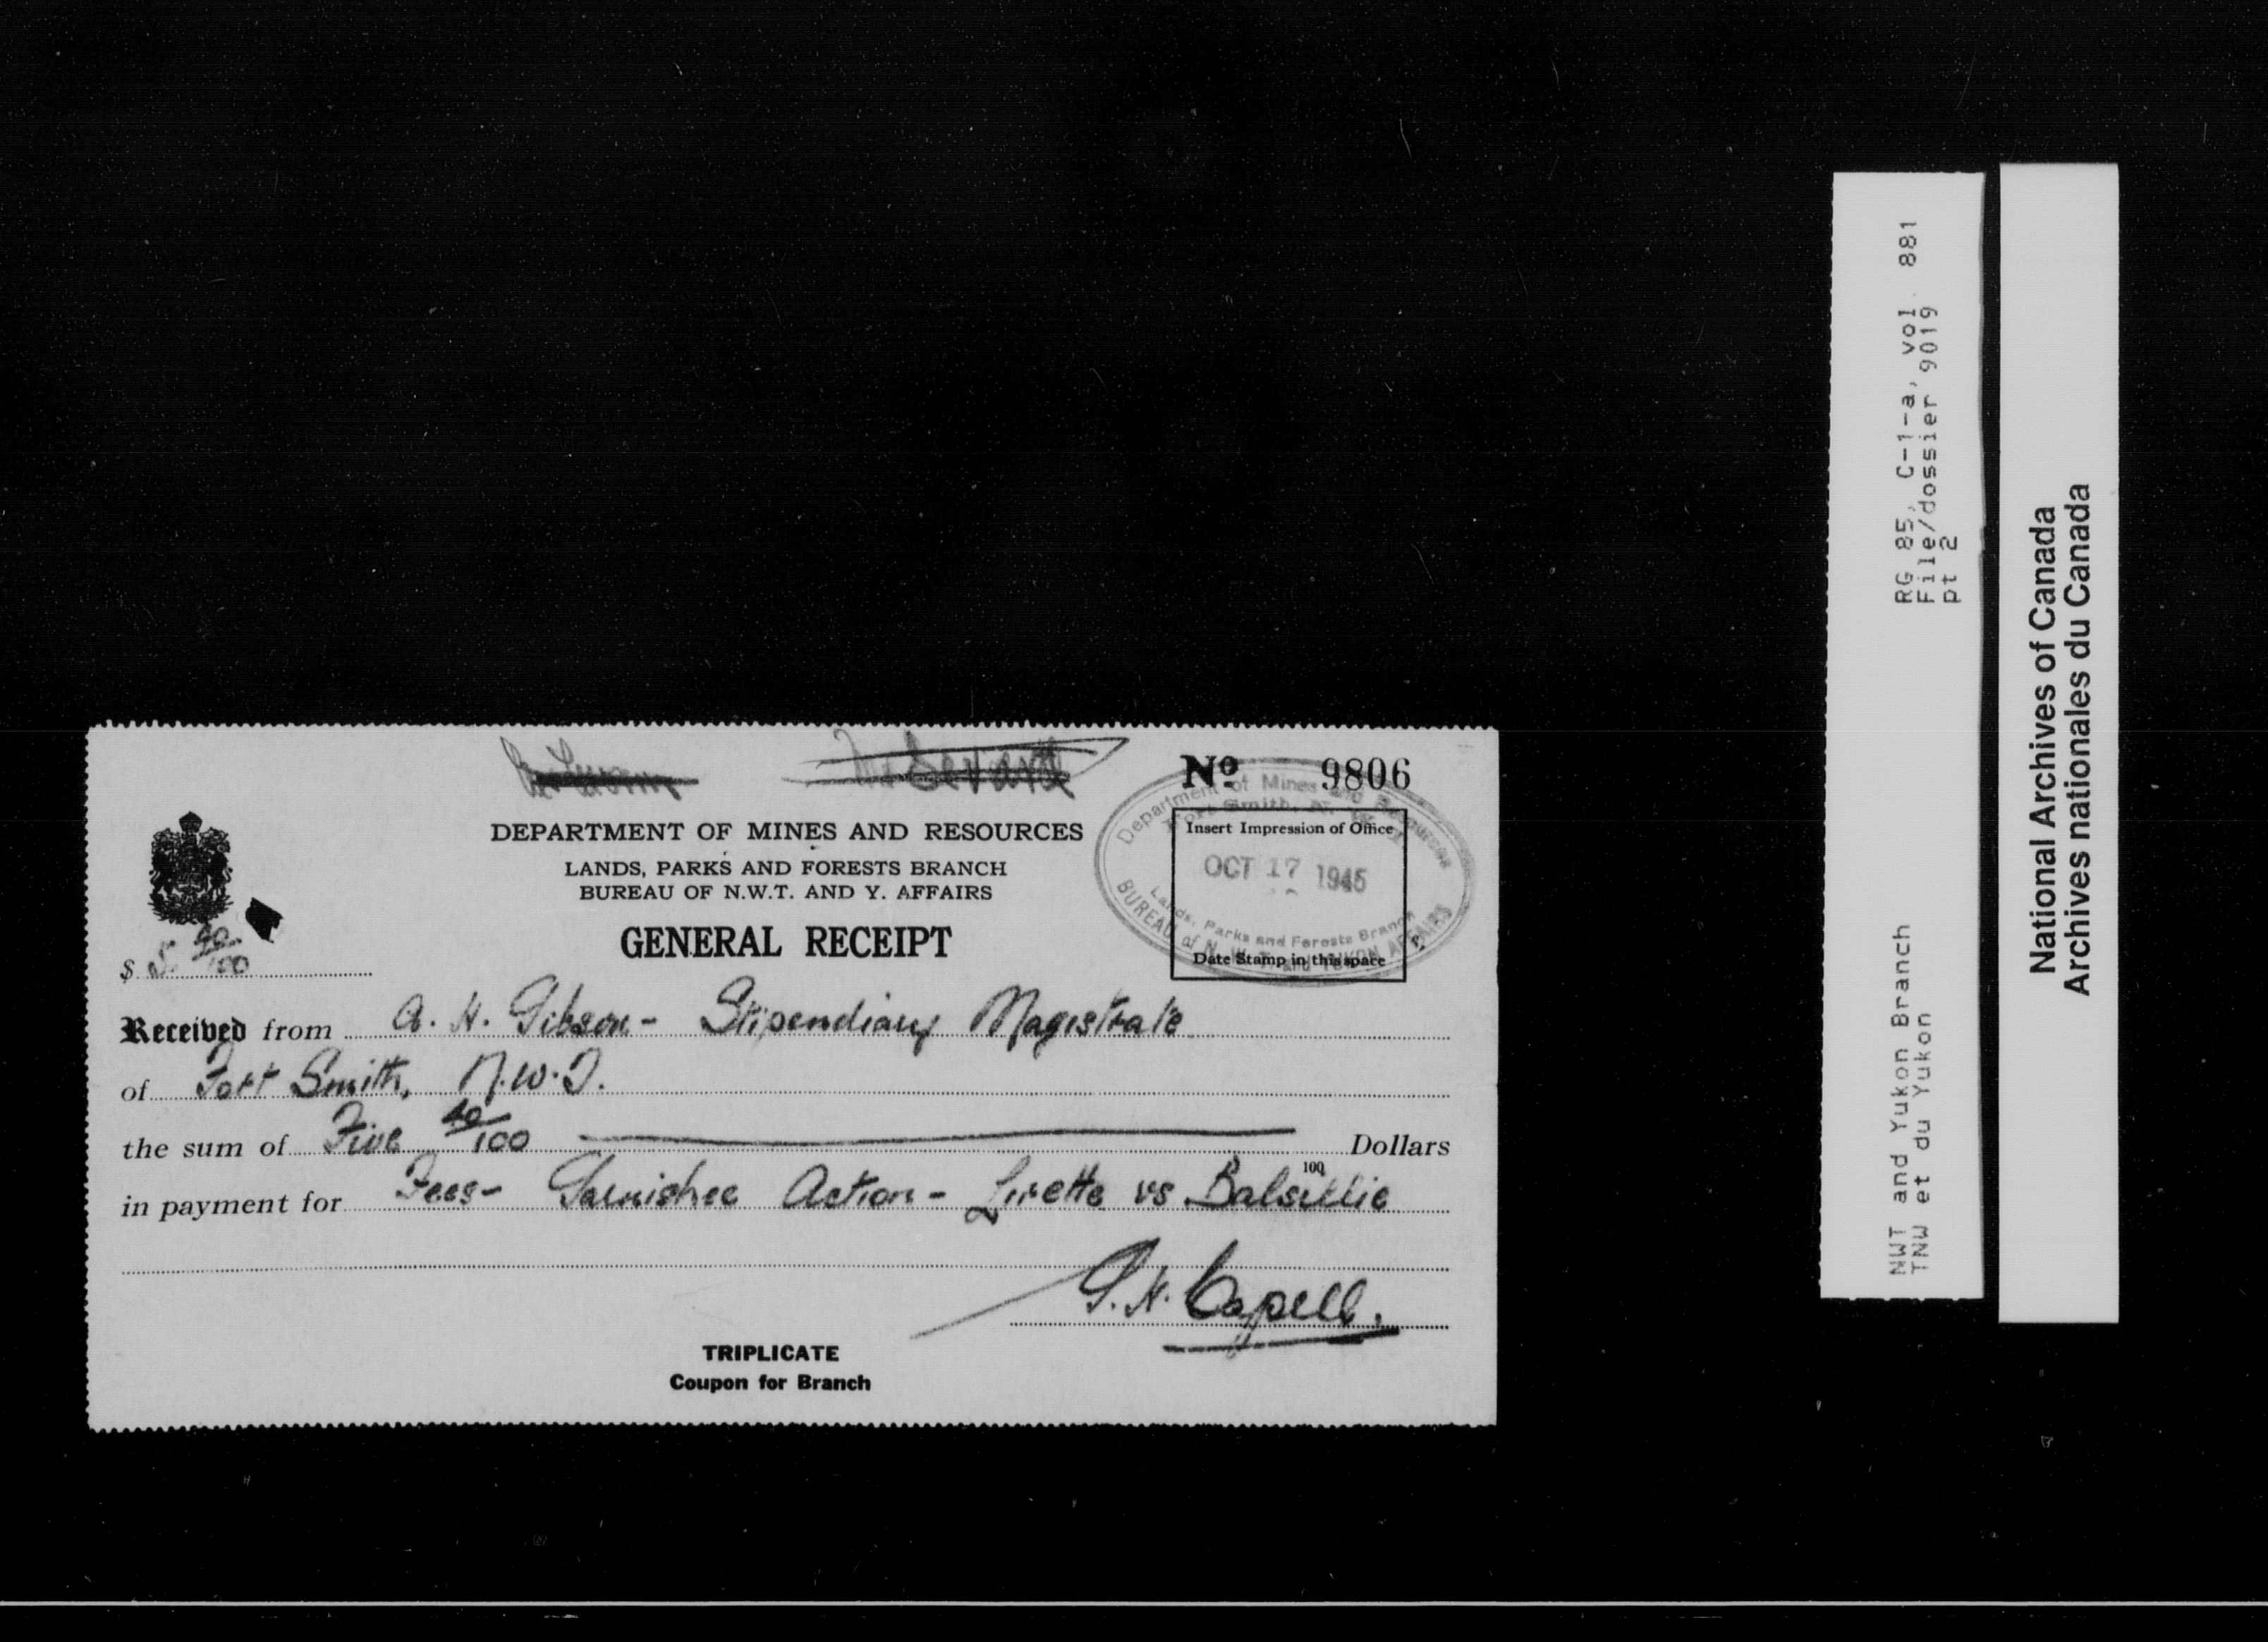 Nº 9806
DEPARTMENT OF MINES AND RESOURCES
LANDS, PARKS AND FORESTS BRANCH
BUREAU OF N.W.T. AND Y. AFFAIRS
GENERAL RECEIPT
Department of Mines and Resources
Fort Smith, N. W. T.
Insert Impression of Office
OCT 17 1945
Lands, Parks and Forests Branch
BUREAU of N. W. T. and YUKON AFFAIRS
Date Stamp in this space
$ 5. 40/100
Received from A. H. Gibson - Stipendiary Magistrate
of Fort Smith, N.W.T.
the sum of Five 40/100 Dollars
100
in payment for Fees - Garnishee Action - Lirette vs Balsillie
G. H. Capell.
TRIPLICATE
Coupon for Branch
NWT and Yukon Branch RG 85, C-1-a, vol. 881
TNW et du Yukon File/dossier 9019
pt 2
National Archives of Canada
Archives nationales du Canada